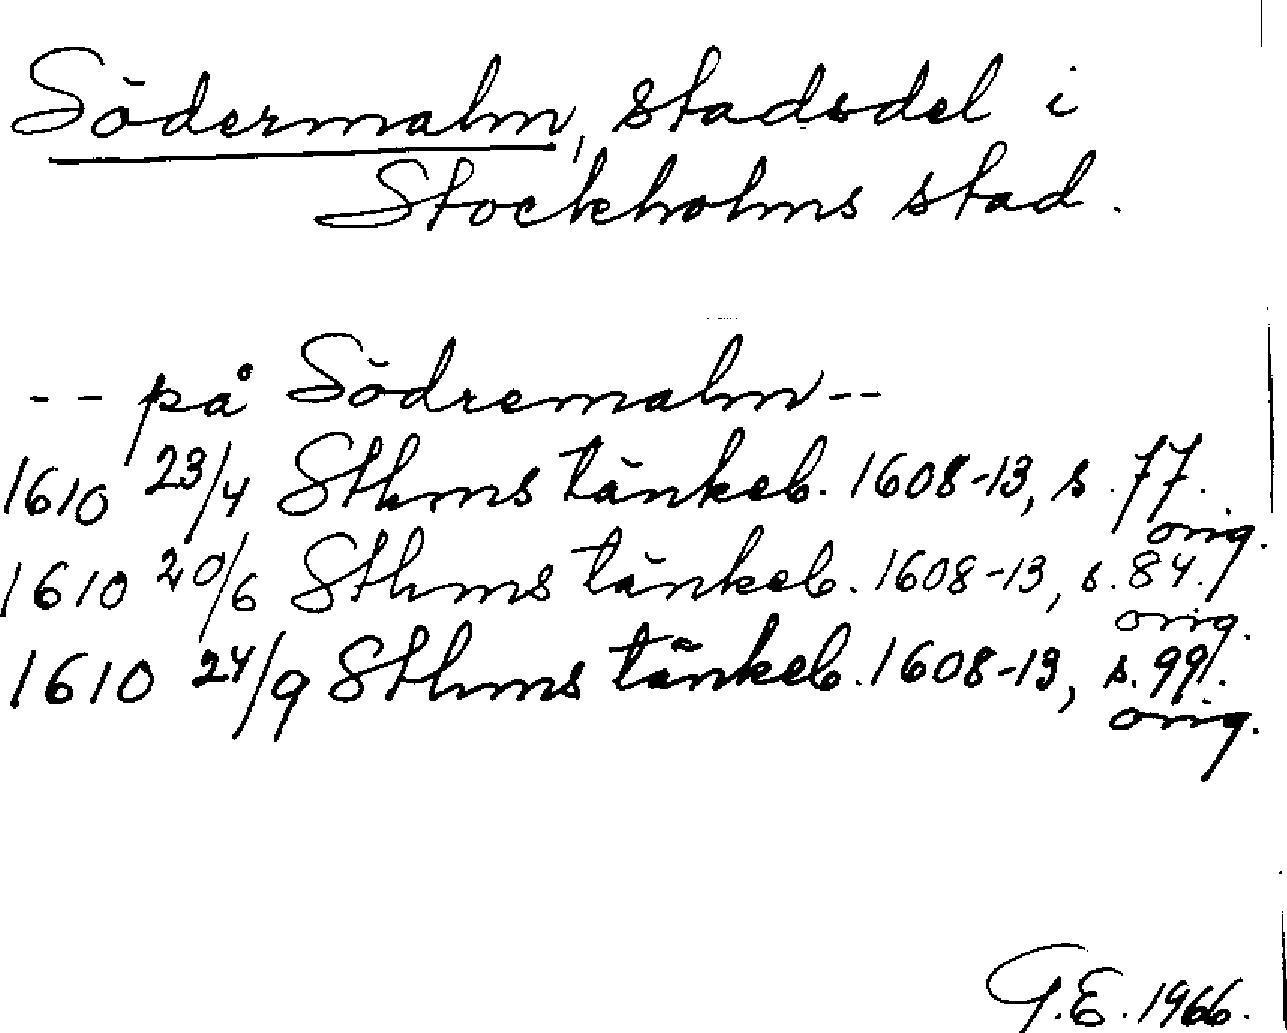 Södermalm, stadsdel i
Stockholms stad.
-- på Södremalm --
1610 23/4 Sthms tänkeb. 1608-13, s. 77.
orig.
1610 20/6 Sthms tänkeb. 1608-13, s. 84.
orig.
1610 24/9 Sthms tänkeb. 1608-13, s. 99.
orig.
G.E. 1966.